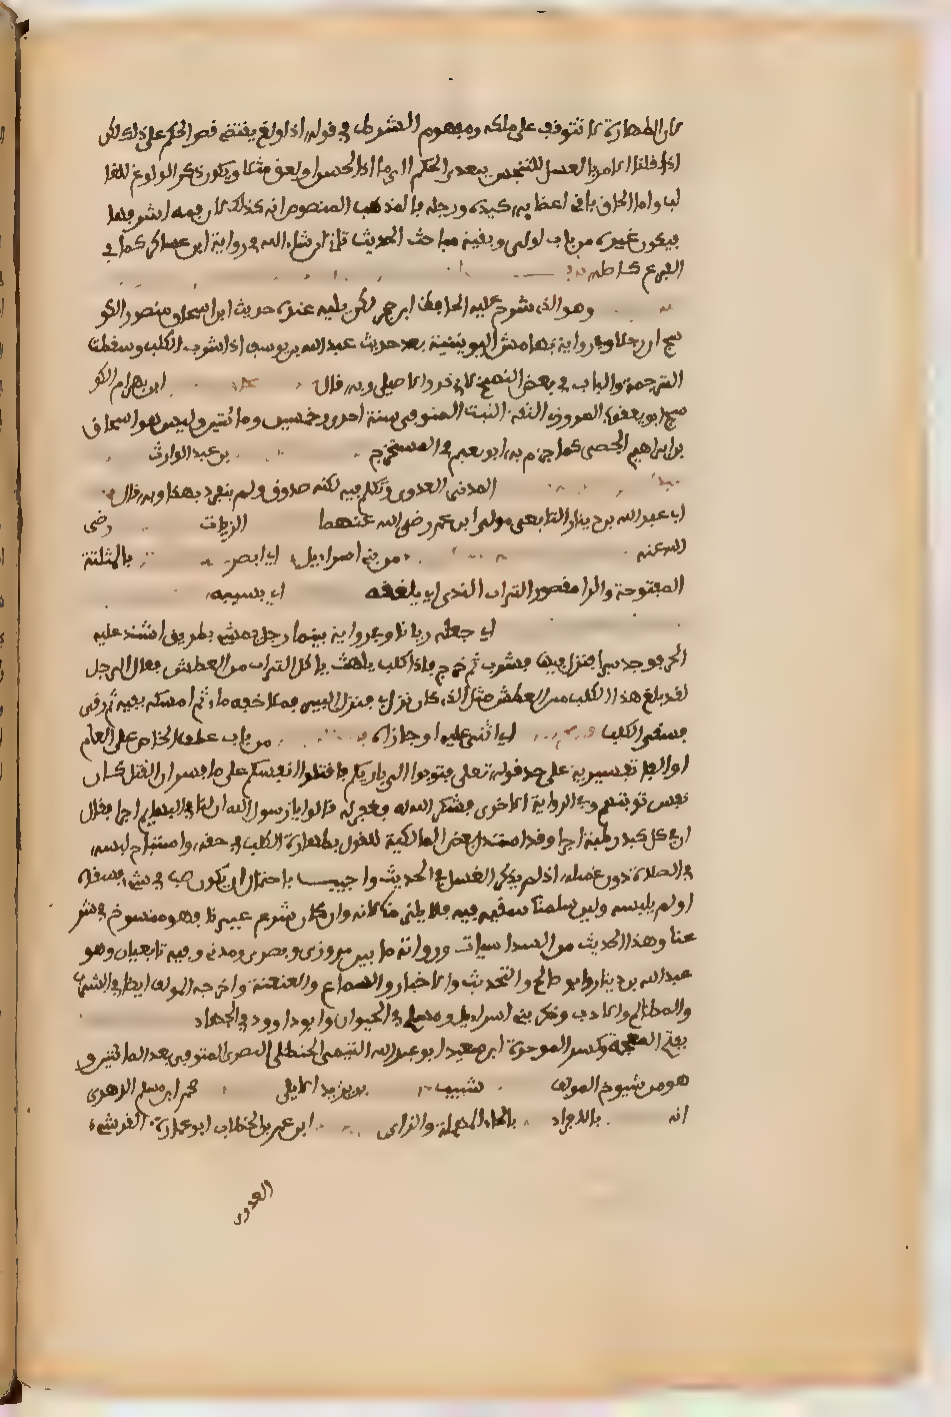 لان الطهارة لا تتوقف على ملكه ومفهوم الشرط في قوله اذا ولغ يقتضي قصر الحكم على ذلك لكن
اذا قلنا الامر بالغسل للتنجس يتعدى الحكم الى ما اذا لحس او لعق مثلا ويكون ذكر الولوغ للغا
لب واما الحاق باقي اعضايه كيده ورجله بالمذهب المنصوص انه كذلك لان فمه اشرفها
فيكون غيره من باب اولى وبقية مباحث الحديث تاتي ان شاء الله في رواية ابن عساكر كما في
الفرع
وهو الذي شرح عليه الحافظ ابن حجر لكن يليه عنده حديث ابن اسحاق بن منصور الكو
سج ان رجلا وفي رواية بهامش اليونينية بعد حديث عبد الله بن يوسف اذا شرب الكلب وسقطت
الترجمة والباب في بعض النسخ لابي ذر والاصيلي وبه قال ابن بهرام الكو
سج ابو يعقوب المروزي الثقة الثبت المتوفى سنة احدى وخمسين ومائتين وليس هو اسحاق
بن ابراهيم الحمصي كما جزم به ابو نعيم في المستخرج بن عبد الوارث
المدني العدوي وتكلم فيه لكنه صدوق ولم ينفرد بهذا وبه قال
اي عبد الله بن دينار التابعي مولى ابن عمر رضي الله عنهما الزيات رضي
الله عنه من بني اسرائيل اي ابصر بالمثلثة
المفتوحة والرا مقصور التراب الندي اي يلعقه اي بسببه
اي جعله ريانا وفي رواية بينما رجل يمشي بطريق اشتد عليه
الحر فوجد بيرا فنزل فيها فشرب ثم خرج فاذا كلب يلهث ياكل التراب من العطش فقال الرجل
لقد بلغ هذا الكلب من العطش مثل الذي كان نزل بي فنزل البير فملا خفه ماء ثم امسكه بفيه ثم رقى
فسقى الكلب اي اثنى عليه او جازاه من باب عطف الخاص على العام
او الفا تفسيرية على حد قوله تعلى فتوبوا الى باريكم فاقتلوا انفسكم على ما فسر ان القتل كان
نفس توبتهم وفي الرواية الاخرى فشكر الله له فغفر له قالوا يا رسول الله ان لنا في البهايم اجرا فقال
ان في كل كبد رطبة اجرا وقد استدل بعض المالكية للقول بطهارة الكلب في خفه واستباح لبسه
في الصلاة دون غسله اذ لم يذكر الغسل في الحديث واجيب باحتمال ان يكون صب في شيء فسقاه
او لم يلبسه ولين سلمنا سقيه فيه فلا يلزمنا لانه وان كان شرع غيرنا فهو منسوخ في شر
عنا وهذا الحديث من السداسيات ورواته ما بين مروزي وبصري ومدني وفيه تابعيان وهو
عبد الله بن دينار وابو صالح والتحديث والاخبار والسماع والعنعنة واخرجه المولف ايضا في الشرب
والمظالم والادب وذكر بني اسرائيل ومسلم في الحيوان وابو داوود في الجهاد
بفتح المعجمة وكسر الموحدة ابن سعيد ابو عبد الله التيمي الحنظلي البصري المتوفى بعد المائتين و
هو من شيوخ المولف شبيب بن يزيد الايلي محمد ابن مسلم الزهري
انه بالحاء المهملة والزاي ابن عمر بن الخطاب ابو عمارة القرشي
العدوي